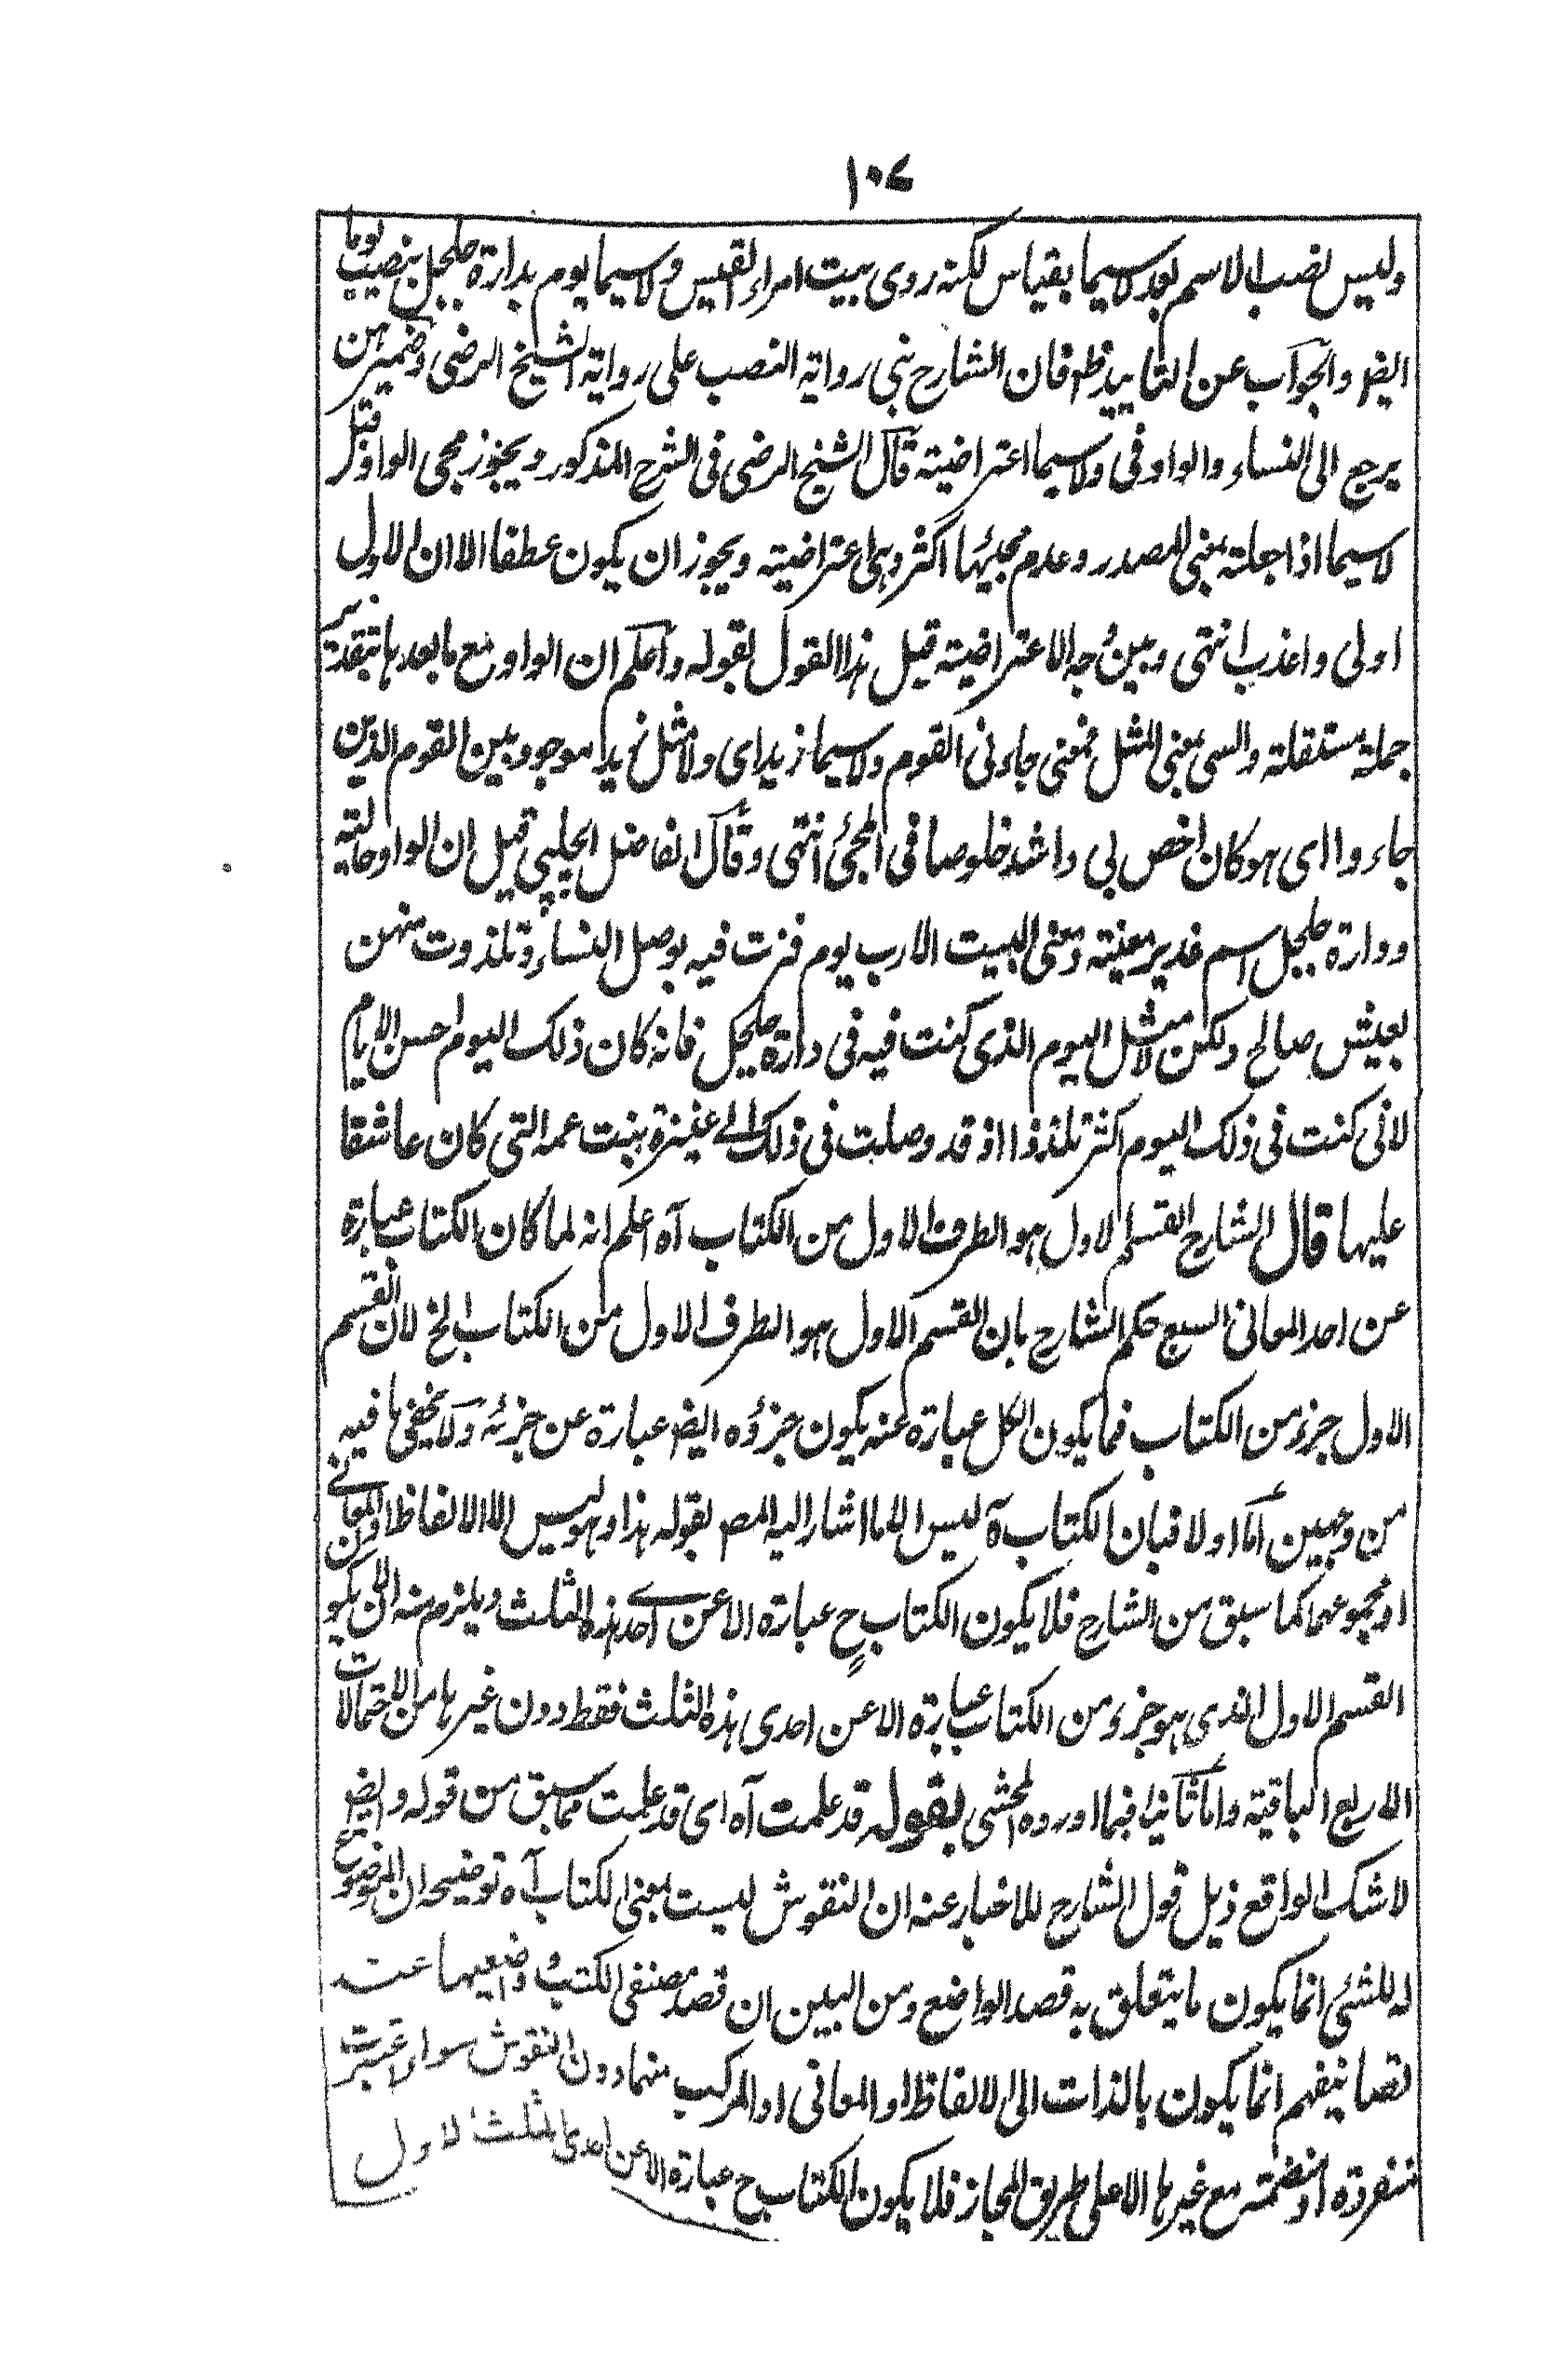 ١٠٧
وليس نصب الاسم بعد لاسيما بقياس لكنه روى بيت امراء القيس ولاسيما يوم بدارة جلجل بنصب يوما
ايضا والجواب عن التاييد ظ فان الشارح بنى رواية النصب على رواية الشيخ الرضى وضمير هن
يرجع الى النساء والواو فى ولاسيما اعتراضية قال الشيخ الرضى فى الشرح المذكور ويجوز مجى الواو قبل
لاسيما اذا جعلته بمعنى المصدر وعدم مجيئها اكثر وهى اعتراضية ويجوز ان يكون عطفا الا ان الاول
اولى واعذب انتهى وبين وجه الاعتراضية قبل هذا القول بقوله واعلم ان الواو مع ما بعدها بتقدير
جملة مستقلة والسى بمعنى المثل فمعنى جاءنى القوم ولاسيما زيد اى ولا مثل زيد موجود بين القوم الذين
جاءوا اى هو كان اخص بى واشد خلوصا فى المجئ انتهى وقال الفاضل الچلپى قيل ان الواو حالية
ودارة جلجل اسم غدير معينة ومعنى البيت الا رب يوم فزت فيه بوصل النساء وتلذذت منهن
بعيش صالح ولكن لا مثل اليوم الذى كنت فيه فى دارة جلجل فانه كان ذلك اليوم احسن الايام
لانى كنت فى ذلك اليوم اكثر تلذذا اذ قد وصلت فى ذلك الى عنيزة بنت عمه التى كان عاشقا
عليها قال الشارح القسم الاول هو الطرف الاول من الكتاب آه اعلم انه لما كان الكتاب عبارة
عن احد المعانى السبع حكم الشارح بان القسم الاول هو الطرف الاول من الكتاب الخ لان القسم
الاول جزء من الكتاب فما يكون الكل عبارة عنه يكون جزؤه ايضا عبارة عن جزئه ولا يخفى ما فيه
من وجهين اما اولا فبان الكتاب آه ليس الا ما اشار اليه المص بقوله هذا وهو ليس الا الالفاظ او المعانى
او مجموعهما كما سبق من الشارح فلا يكون الكتاب ح عبارة الا عن احدى هذه الثلث ويلزم منه ان لا يكون
القسم الاول الذى هو جزء من الكتاب عبارة الا عن احدى هذه الثلث فقط دون غيرها من الاحتمالات
الاربع الباقية واما ثانيا فبما اورده المحشى بقوله قد علمت آه اى قد علمت مما سبق من قوله وايضا
لاشك الواقع ذيل قول الشارح للاخبار عنه ان النقوش ليست بمعنى الكتاب آه توضيحه ان الموضوع
له للشئ انما يكون ما يتعلق به قصد الواضع ومن البين ان قصد مصنفى الكتب وواضعيها عند
تصانيفهم انما يكون بالذات الى الالفاظ او المعانى او المركب منهما دون النقوش سواء اعتبرت
منفردة او منضمة مع غيرها الا على طريق المجاز فلا يكون الكتاب ح عبارة الا عن احدى الثلث الاول